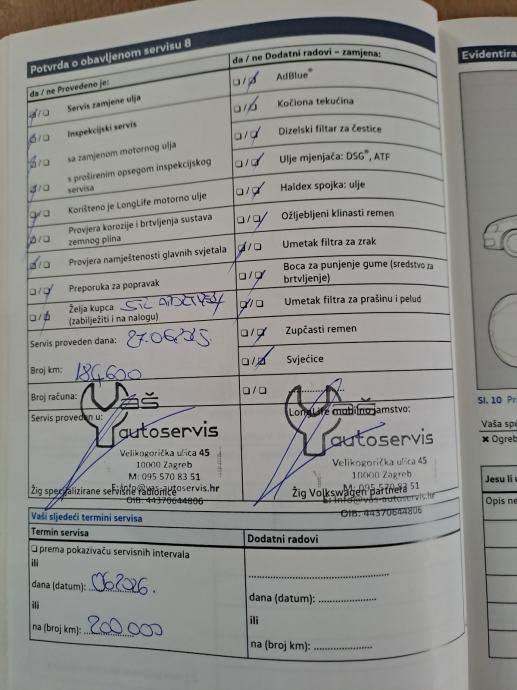 Potvrda o obavljenom servisu 8
da / ne Provedeno je:
Servis zamjene ulja
Inspekcijski servis
sa zamjenom motornog ulja
s proširenim opsegom inspekcijskog
servisa
Korišteno je LongLife motorno ulje
Provjera korozije i brtvljenja sustava
zemnog plina
Provjera namještenosti glavnih svjetala
Preporuka za popravak
Želja kupca
(zabilježiti i na nalogu)
Servis proveden dana: 27.06.2025
Broj km: 184600
Broj računa:
Servis proveden u:
VAŠ
autoservis
Velikogorička ulica 45
10000 Zagreb
M: 095 570 83 51
E: info@vas-autoservis.hr
OIB: 44370644806
Žig specijalizirane servisne radionice
da / ne Dodatni radovi – zamjena:
AdBlue®
Kočiona tekućina
Dizelski filtar za čestice
Ulje mjenjača: DSG®, ATF
Haldex spojka: ulje
Ožljebljeni klinasti remen
Umetak filtra za zrak
Boca za punjenje gume (sredstvo za
brtvljenje)
Umetak filtra za prašinu i pelud
Zupčasti remen
Svjećice
LongLife mobilno jamstvo:
autoservis
Velikogorička ulica 45
10000 Zagreb
M: 095 570 83 51
E: info@vas-autoservis.hr
OIB: 44370644806
Žig Volkswagen partnera
Vaši sljedeći termini servisa
Termin servisa
prema pokazivaču servisnih intervala
ili
dana (datum): 06 2026.
ili
na (broj km): 200 000
Dodatni radovi
dana (datum):
ili
na (broj km):
Evidentira
Sl. 10
Vaša
Ogreb
Jesu li
Opis